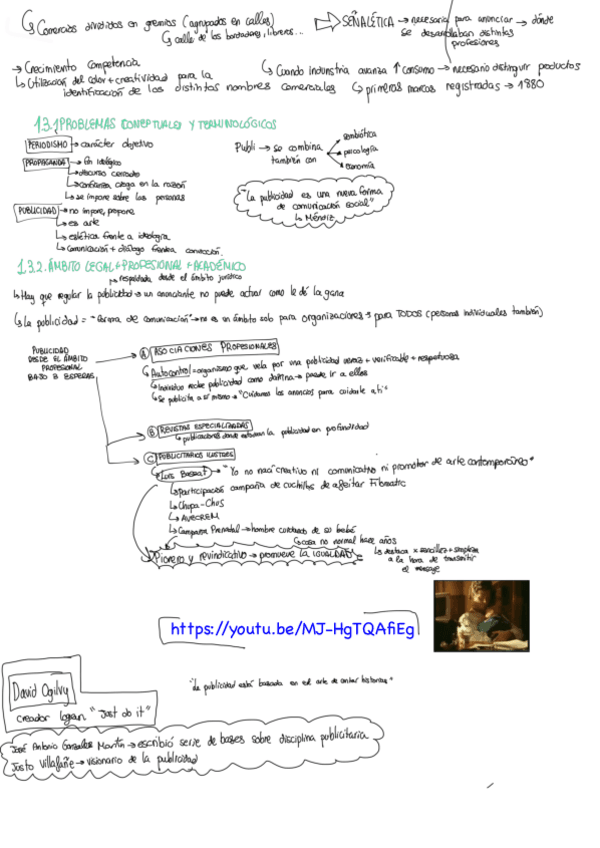 ↳ Comercios divididos en gremios (agrupados en calles)
↳ calle de los bordadores, libreros...
SEÑALÉTICA → necesaria para anunciar → dónde se desarrollaban distintas profesiones
→ Crecimiento competencia
↳ Utilización del color + creatividad para la identificación de los distintos nombres comerciales
↳ Cuando Industria avanza ↑ consumo → necesario distinguir productos
↳ primeras marcas registradas → 1880
1.3.1 PROBLEMAS CONCEPTUALES Y TERMINOLÓGICOS
PERIODISMO → carácter objetivo
PROPAGANDA → fin ideológico
↳ discurso cerrado
↳ confianza ciega en la razón
↳ se impone sobre las personas
PUBLICIDAD → no impone, propone
↳ es arte
↳ estética frente a ideología
↳ comunicación + diálogo frente a
Publi → se combina también con
semiótica
psicología
economía
"La publicidad es una nueva forma de comunicación social"
↳ Méndiz
1.3.2. ÁMBITO LEGAL + PROFESIONAL + ACADÉMICO
↳ respaldada desde el ámbito jurídico
↳ Hay que regular la publicidad → un anunciante no puede actuar como le dé la gana
↳ La publicidad = "forma de comunicación" → no es un ámbito solo para organizaciones → para TODOS (personas individuales también)
PUBLICIDAD DESDE EL ÁMBITO PROFESIONAL BAJO 3 ESFERAS
A ASOCIACIONES PROFESIONALES
↳ Autocontrol = organismo que vela por una publicidad veraz + verificable + respetuosa
↳ Individuo recibe publicidad como dañina → puede ir a ellos
↳ Se publicita a sí mismo → "Cuidamos los anuncios para cuidarte a ti"
B REVISTAS ESPECIALIZADAS
↳ publicaciones donde la publicidad en profundidad
C PUBLICITARIOS ILUSTRES
Luis Bassat → "Yo no nací creativo ni comunicativo ni promotor de arte contemporáneo"
↳ Participación campaña de cuchillos de afeitar Filomatic
↳ Chupa-Chus
↳ AVECREM
↳ Campaña Prenatal → hombre cuidando de su bebé
↳ cosa no normal hace años
Pionero y reivindicativo → promueve la IGUALDAD
↳ destaca x sencillez + simpleza a la hora de transmitir el mensaje
https://youtu.be/MJ-HgTQAfiEg
David Ogilvy
creador "Just do it"
"La publicidad está basada en el arte de contar historias"
José Antonio González Martín → escribió serie de bases sobre disciplina publicitaria
Justo Villafañe → visionario de la publicidad